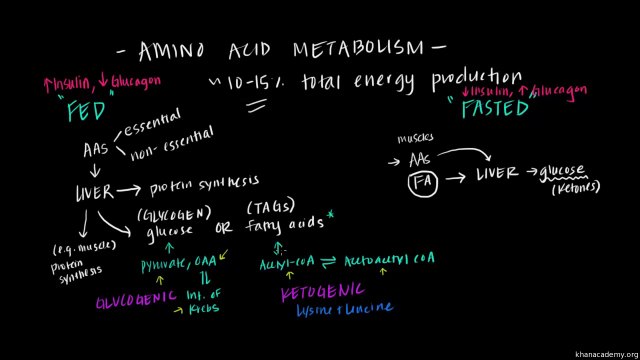 - AMINO ACID METABOLISM -
↑Insulin, ↓ Glucagon
~ 10-15% total energy production
"FED"
↓Insulin, ↑Glucagon
"FASTED"
essential
AAs
non-essential
muscles
→ AAs
FA → LIVER → glucose
(ketones)
LIVER → protein synthesis
(GLYCOGEN) (TAGs)
glucose OR fatty acids *
(e.g. muscle)
protein
synthesis
Pyruvate, OAA
Acetyl-CoA ⇌ Acetoacetyl CoA
GLUCOGENIC
Int. of
Krebs
KETOGENIC
Lysine + Leucine
khanacademy.org